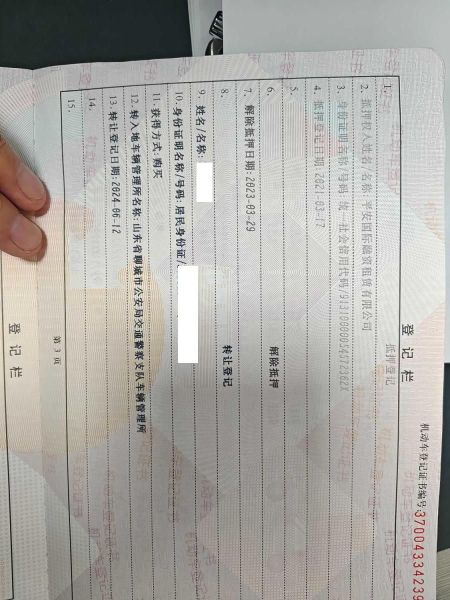 机动车登记证书编号:37004334239
登记栏
1. 抵押登记
2. 抵押权人姓名/名称:平安国际融资租赁有限公司
3. 身份证明名称/号码:统一社会信用代码/913100000
4. 抵押登记日期:2021-03-17
5.
6. 解除抵押
7. 解除抵押日期:2023-03-29
8. 转让登记
9. 姓名/名称:
10. 身份证明名称/号码:居民身份证/
11. 获得方式:购买
12. 转入地车辆管理所名称:山东省聊城市公安局交通警察支队车辆管理所
13. 转让登记日期:2024-06-12
14.
15.
第 3 页
登记栏